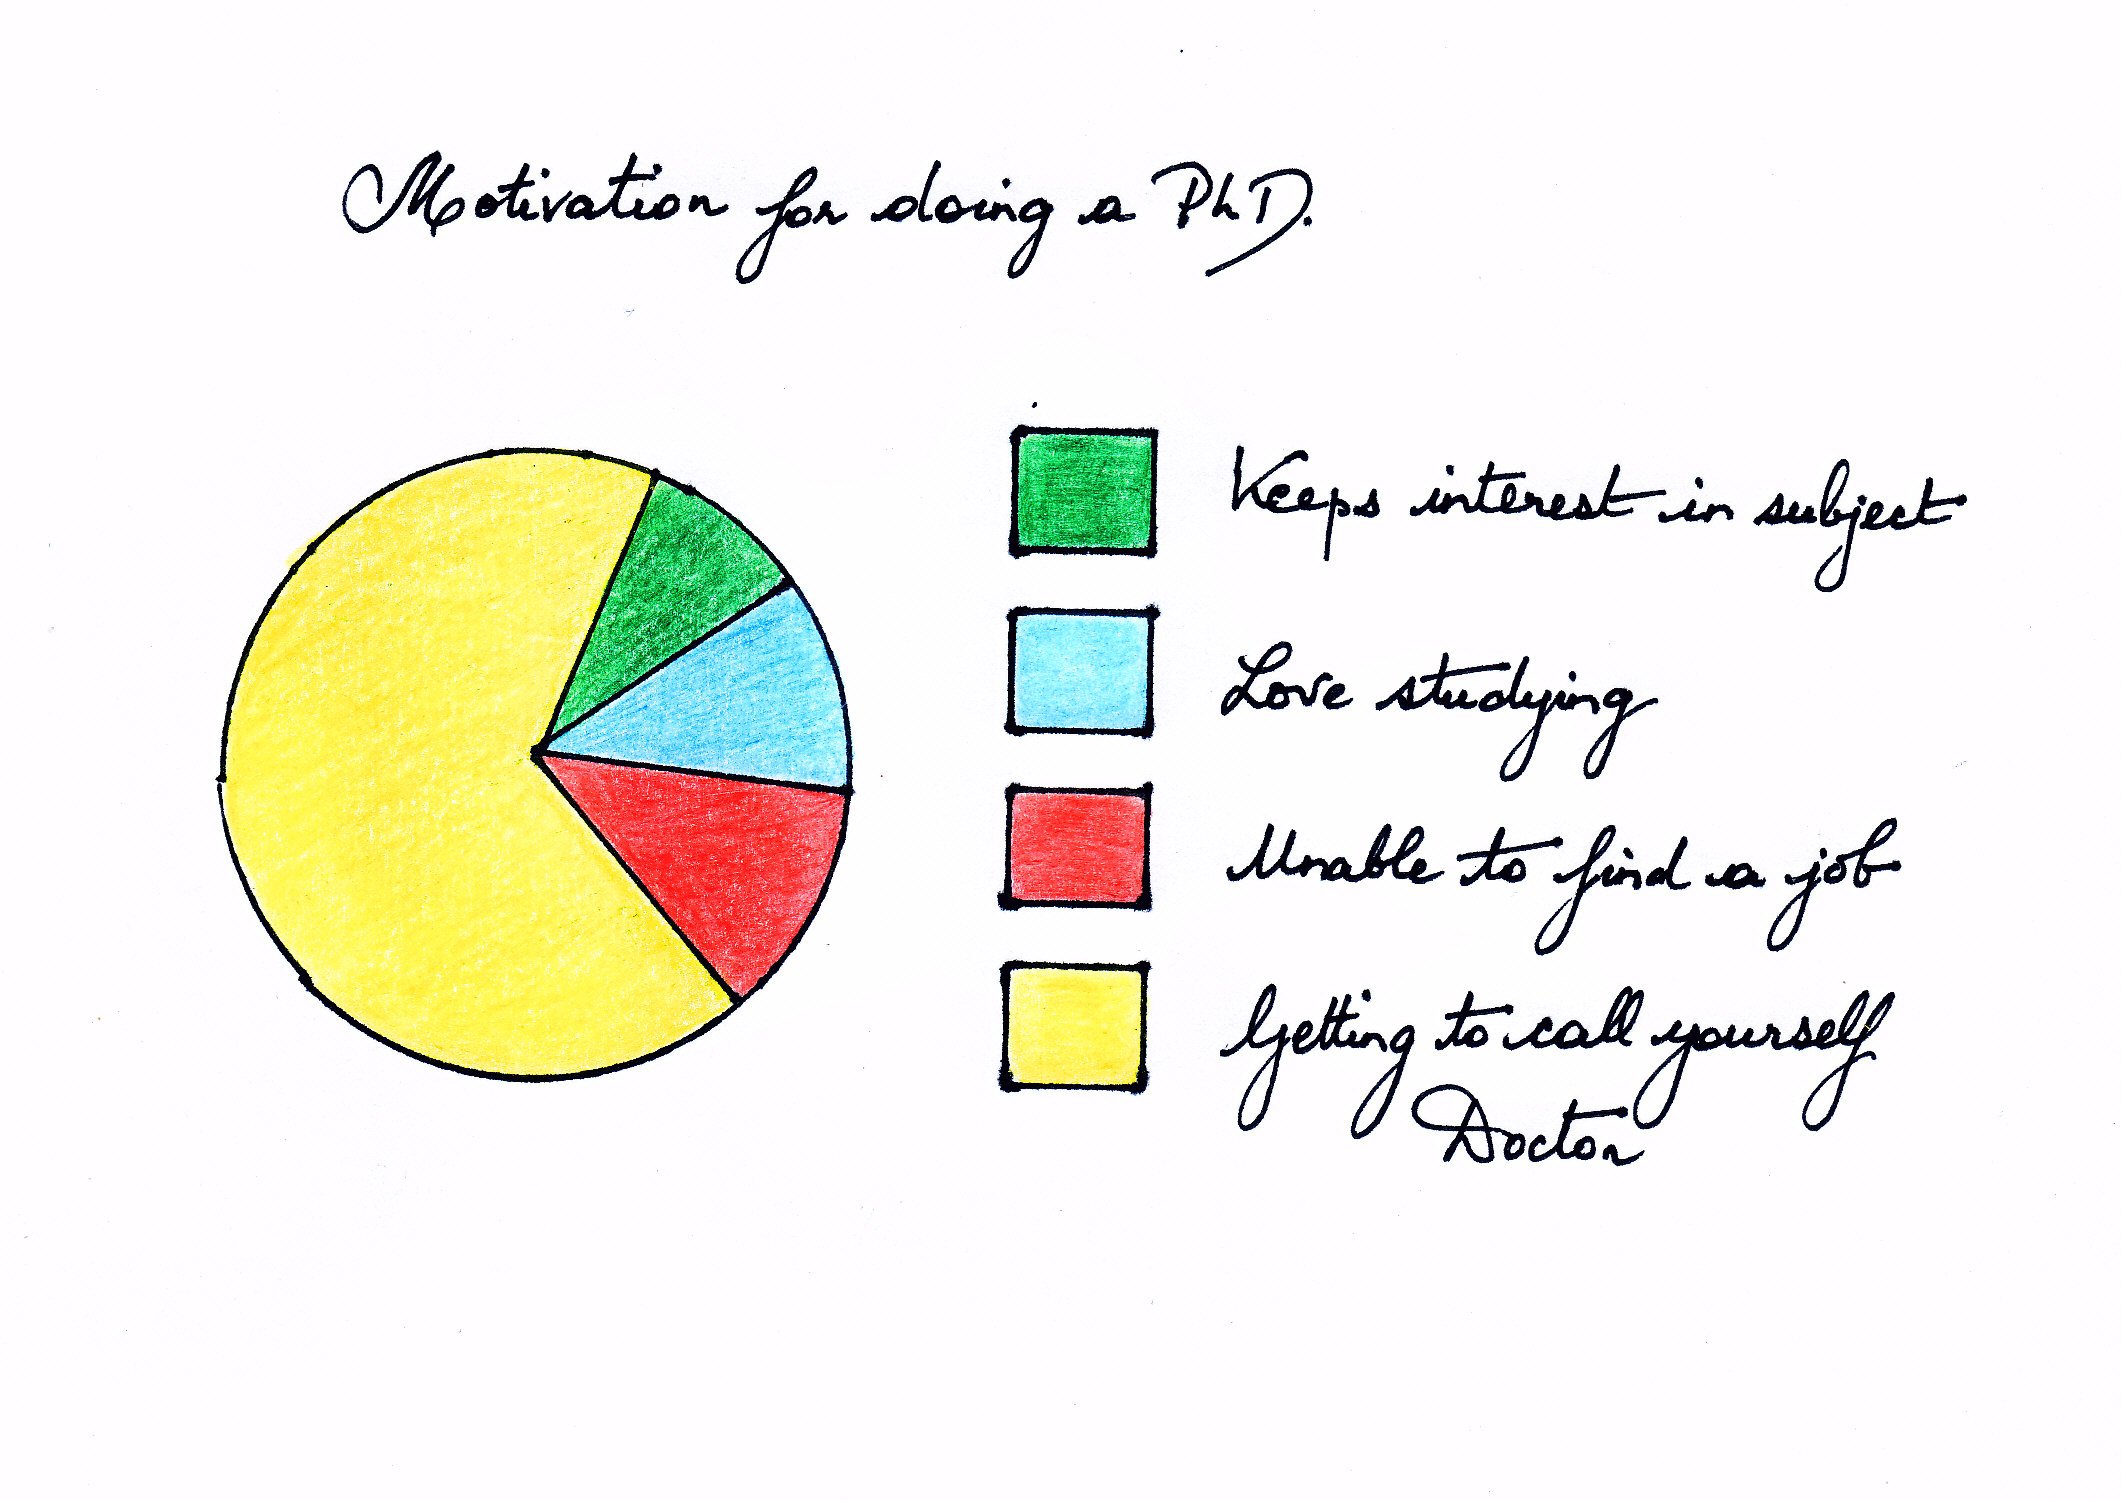 Motivation for doing a PhD.
Keeps interest in subject
Love studying
Unable to find a job
Getting to call yourself
Doctor